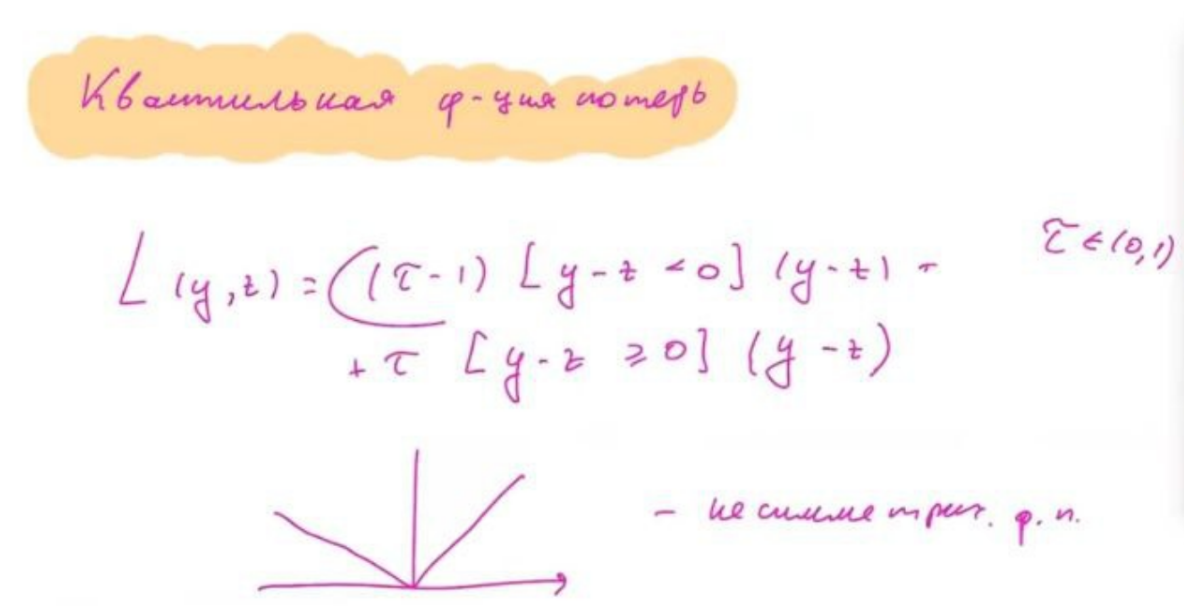 Квантильная ф-ция потерь
τ ∈ (0,1)
L(y,z) = ((τ-1) [y-z < 0] (y-z) +
+ τ [y-z ≥ 0] (y-z)
- несимметрич. ф.п.